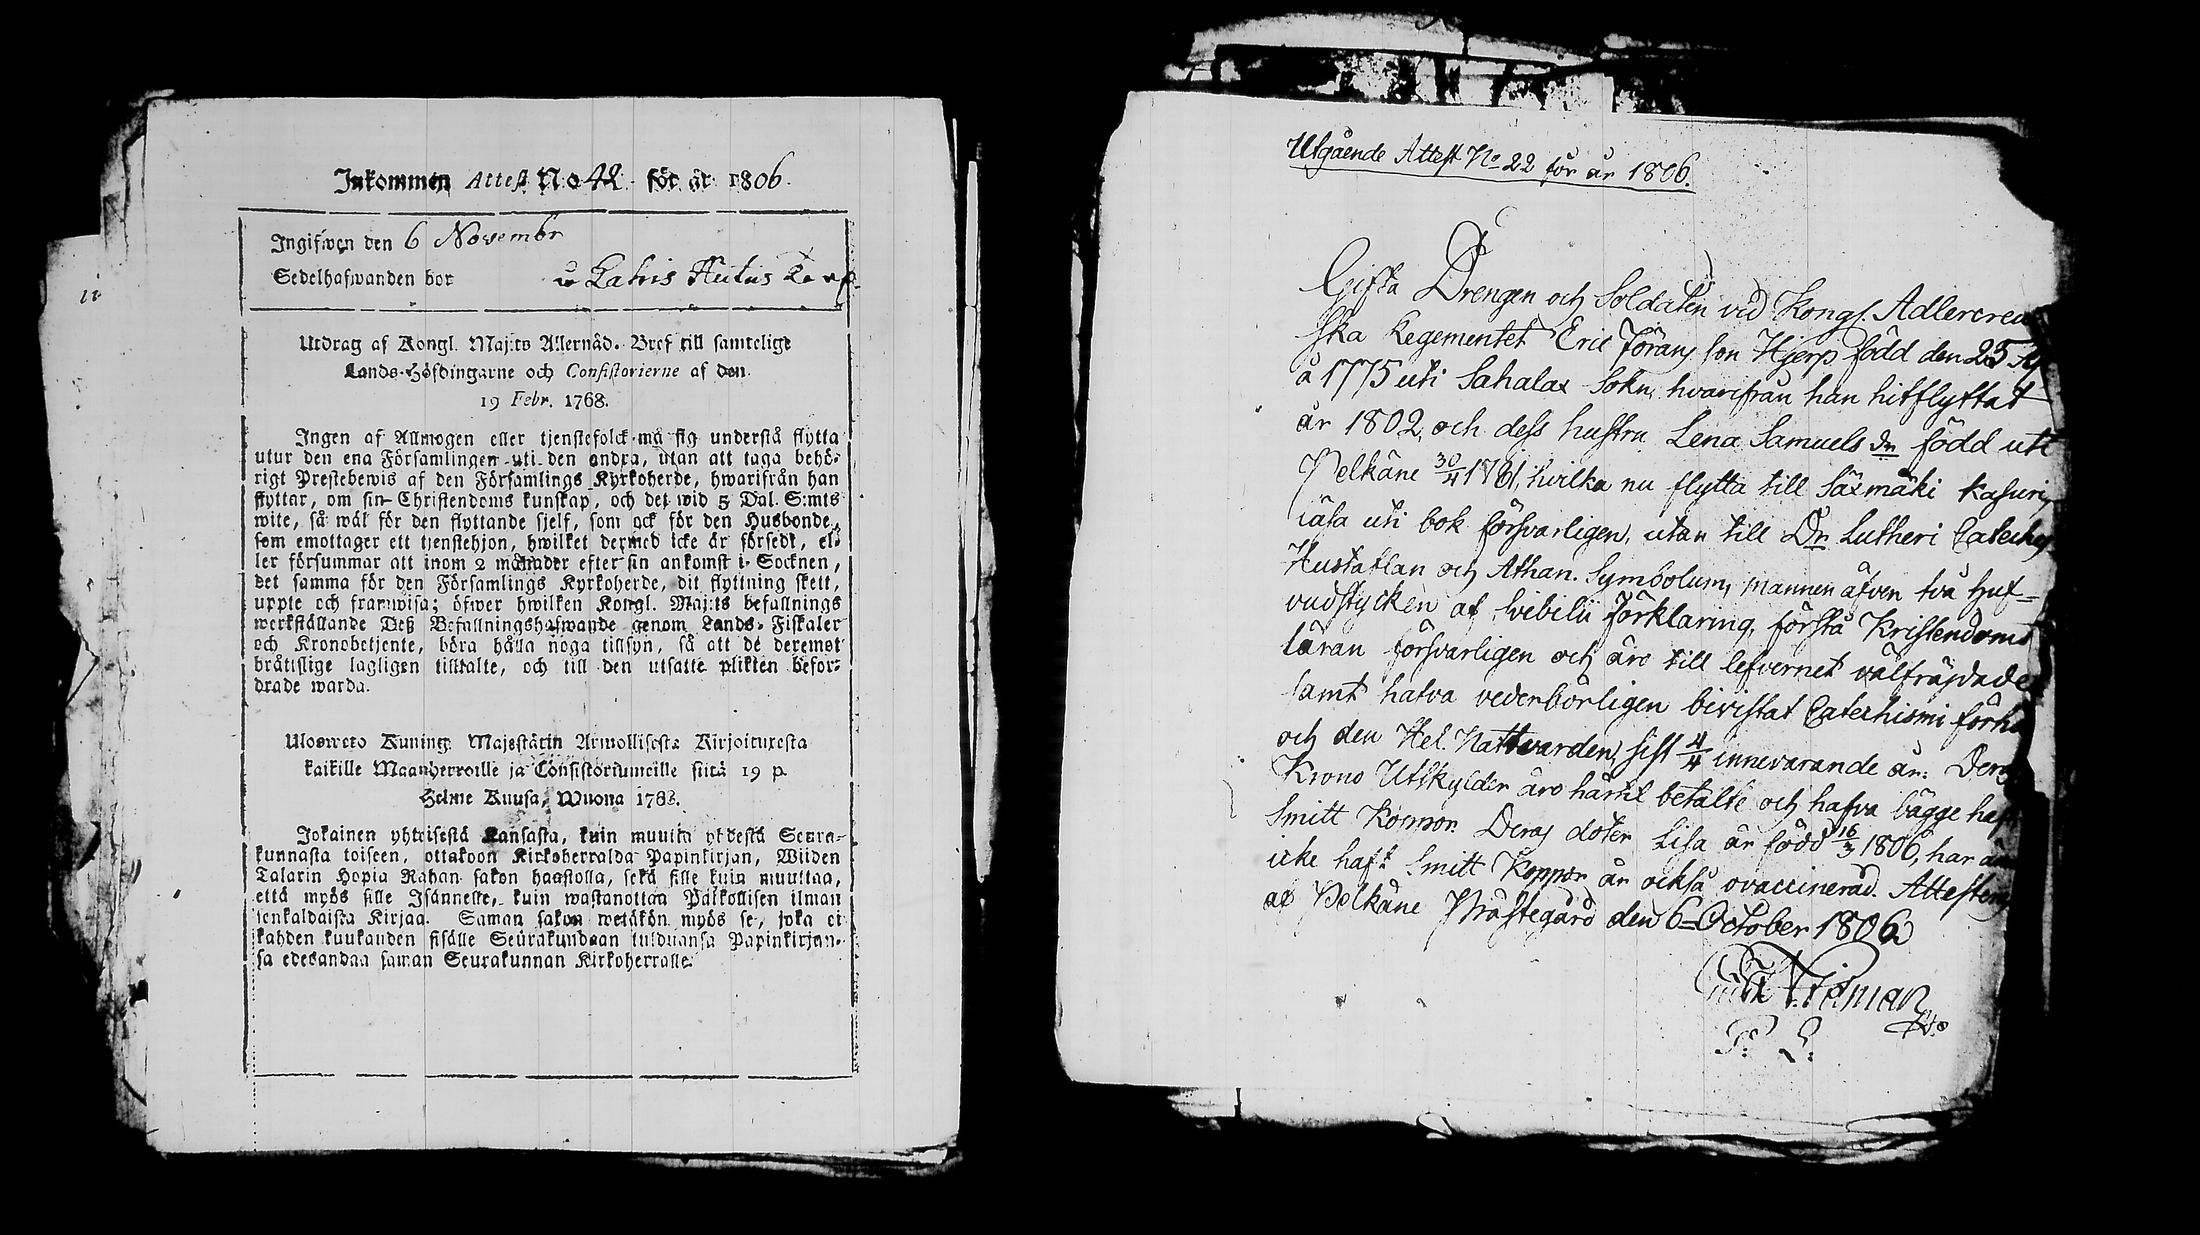 Inkommen Attest No 42. för år 1806.
Ingifwen den 6 Novembr
Sedelhafwanden bor
Utdrag af Kongl. Maj:ts Allernåd. Bref till samtelige
Lands-Höfdingarne och Consistorierne af den
19 Febr. 1768.
Ingen af Allmogen eller tjenstefolck må sig understå flytta
utur den ena Församlingen uti den andra, utan att taga behö-
rigt Prestebewis af den Församlings Kyrkoherde, hwarifrån han
flyttar, om sin Christendoms kunskap, och det wid 5 Dal. S:mts
wite, så wäl för den flyttande sjelf, som ock för den Husbonde,
som emottager ett tjenstehjon, hwilket dermed icke är försedt, el-
ler försummar att inom 2 månader efter sin ankomst i Socknen,
det samma för den Församlings Kyrkoherde, dit flyttning skett,
uppte och framwisa; öfwer hwilken Kongl. Maj:ts befallnings
werkställande Deß Befallningshafwande genom Lands-Fiskaler
och Kronobetjente, böra hålla noga tillsyn, så att de deremot
bråttslige lagligen tilltalte, och till den utsatte plikten befor-
drade warda.
Ulosweto Kuning: Majestätin Armollisesta Kirjoituxesta
kaikille Maanherroille ja Consistoriumeille siitä 19 p.
Helme Kuusa, Wuona 1768.
Jokainen yhteisestä Kansasta, kuin muutta yhdestä Seura-
kunnasta toiseen, ottakoon Kirkoherralda Papinkirjan, Wiiden
Talarin Hopia Rahan sakon haastolla, sekä sille kuin muuttaa,
että myös sille Isännelle, kuin wastanottaa Palkollisen ilman
senkaldaista Kirjaa. Saman sakon wetäkön myös se, joka ei
kahden kuukauden sisälle Seurakundaan tulduansa Papinkirjan-
sa edesandaa saman Seurakunnan Kirkoherralle.
Utgående Attest No 22 för år 1806.
Gifta Drengen och Soldaten vid Kongl. Adlercreu
ska Regementet Eric Jörans son Hjerp född den 25
å 1775 uti Sahalax Sokn, hvarifrån han hitflyttat
år 1802, och dess hustru Lena Samuels dr född uti
Pelkäne 30/4 1761, hvilka nu flytta till Säxmäki
läsa uti bok försvarligen, utan till Dr Lutheri Catechs
Hustaflan och Athan. Symbolum, mannen äfven två Huf-
vudstycken af Svebilii Förklaring, förstå Kristendoms
läran försvarligen och äro till lefvernet välfräjdade
samt hafva vederbörligen bivistat Catechismi förh
och den Hel. Nattvarden, sist 4/4 innevarande år. Deras
Krono Utskylder äro härtil betalte och hafva bägge haft
Smitt Koppor. Deras doter Lisa är född 16/3 1806, har än
icke haft Smitt Koppor är också ovaccinerad. Attesteras
af Pelkäne Prästegård den 6 October 1806